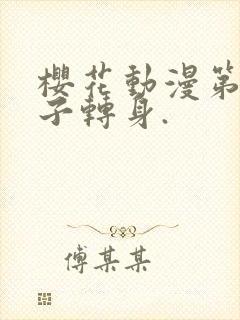 櫻花動漫第
子轉身.
傅某某